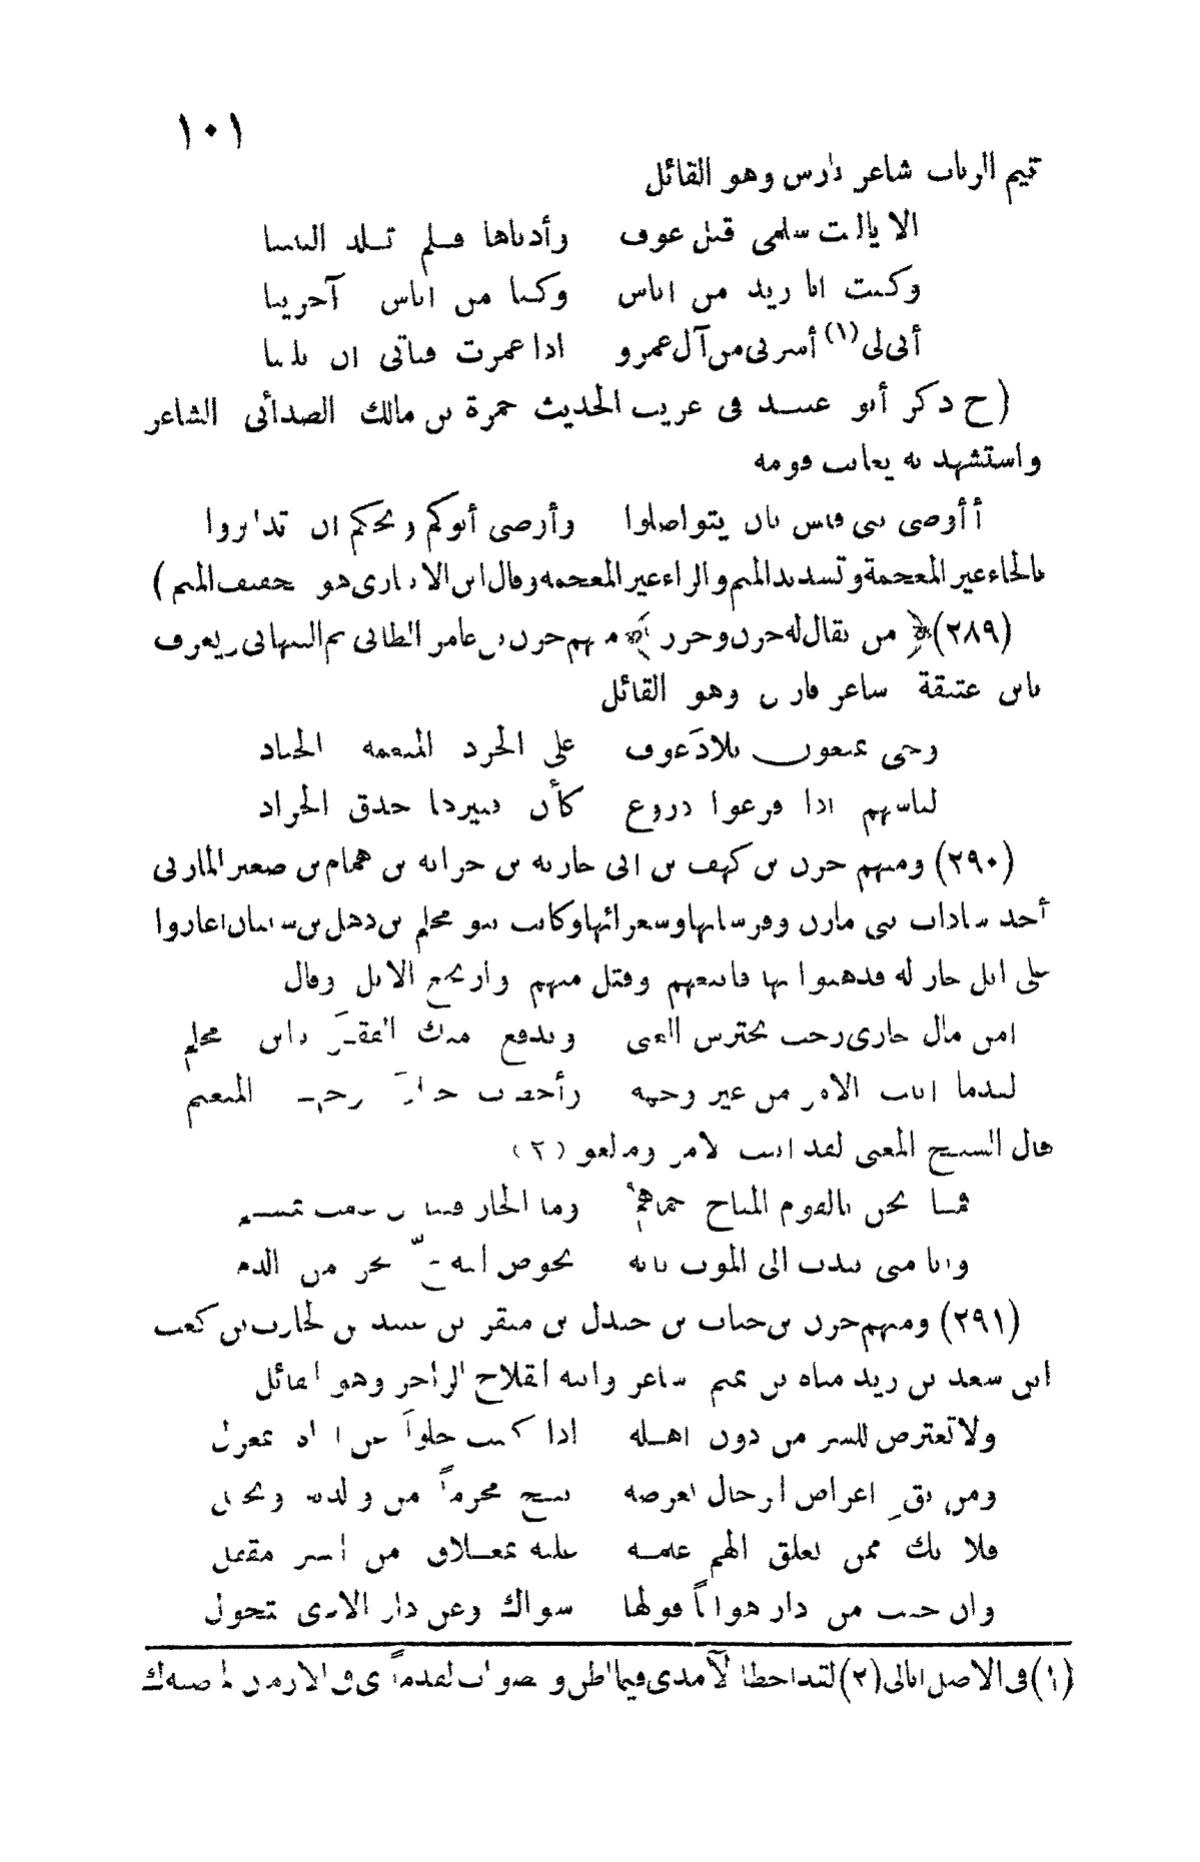 ١٠١
تيم الرباب شاعر فارس وهو القائل
الا ياليت سلمى قبل عوف وأدناها فلم تلد البنينا
وكنت انا زيد من اناس وكنا من اناس آخرينا
أبى لى (١) أسرتى من آل عمرو اذا عمرت قناتى ان تلينا
(ح ذكر أبو عبيد فى غريب الحديث حمرة بن مالك الصدائى الشاعر
واستشهد به يعاتب قومه
أأوصى بنى قيس بان يتواصلوا وأرصى أبوكم ويحكم ان تدابروا
بالحاء غير المعجمة وتشديد الميم والراء غير المعجمة وقال ابن الانبارى هو خفيف الميم)
(٢٨٩) من يقال له حزن وحرر منهم حزن بن عامر الطائى ثم النبهانى ويعرف
بابن عتيقة شاعر فارس وهو القائل
وحى يمنعون بلاد عوف على الجرد المنعمه الجياد
لباسهم اذا فزعوا دروع كأن قتيرها حدق الجراد
(٢٩٠) ومنهم حزن بن كهف بن ابى حارثه بن حرابه بن همام بن صعير المازنى
أحد سادات بنى مازن وفرسانها وشعرائها وكانت بنو محلم بن ذهل بن شيبان اغاروا
على ابل جار له فذهبوا بها فاتبعهم وقتل منهم وارتجع الابل وقال
امن مال جارى رحت تحترس الغنى وتدفع منك الفقر يابن محلم
لبئسما اتيت الامر من غير وجهه وأخطأت جهلا وجهة المتغنم
قال الشيخ المعنى لقد اتيت الامر وما لغو (٢)
فما نحن بالقوم المباح حماهم وما الجار فينا
وانا متى نندب الى الموت نأته نخوض اليه لج بحر من الدم
(٢٩١) ومنهم حزن بن جناب بن جندل بن منقر بن عبيد بن الحارث بن كعب
ابن سعد بن زيد مناه بن تميم شاعر وابنه القلاخ الراجز وهو القائل
ولا تعترض للشر من دون اهله اذا كنت خلوا عن اذاه بمعزل
ومن يق اعراض الرجال بعرضه يبح محرما من والديه ويجهل
فلا يك ممن يغلق الهم علمه عليه بمغلاق من السر مقفل
وان خفت من دار هوانا فولها سواك وعن دار الاذى فتحول
(١) فى الاصل انالى (٢) لقد اخطا الآمدى فيما ظن